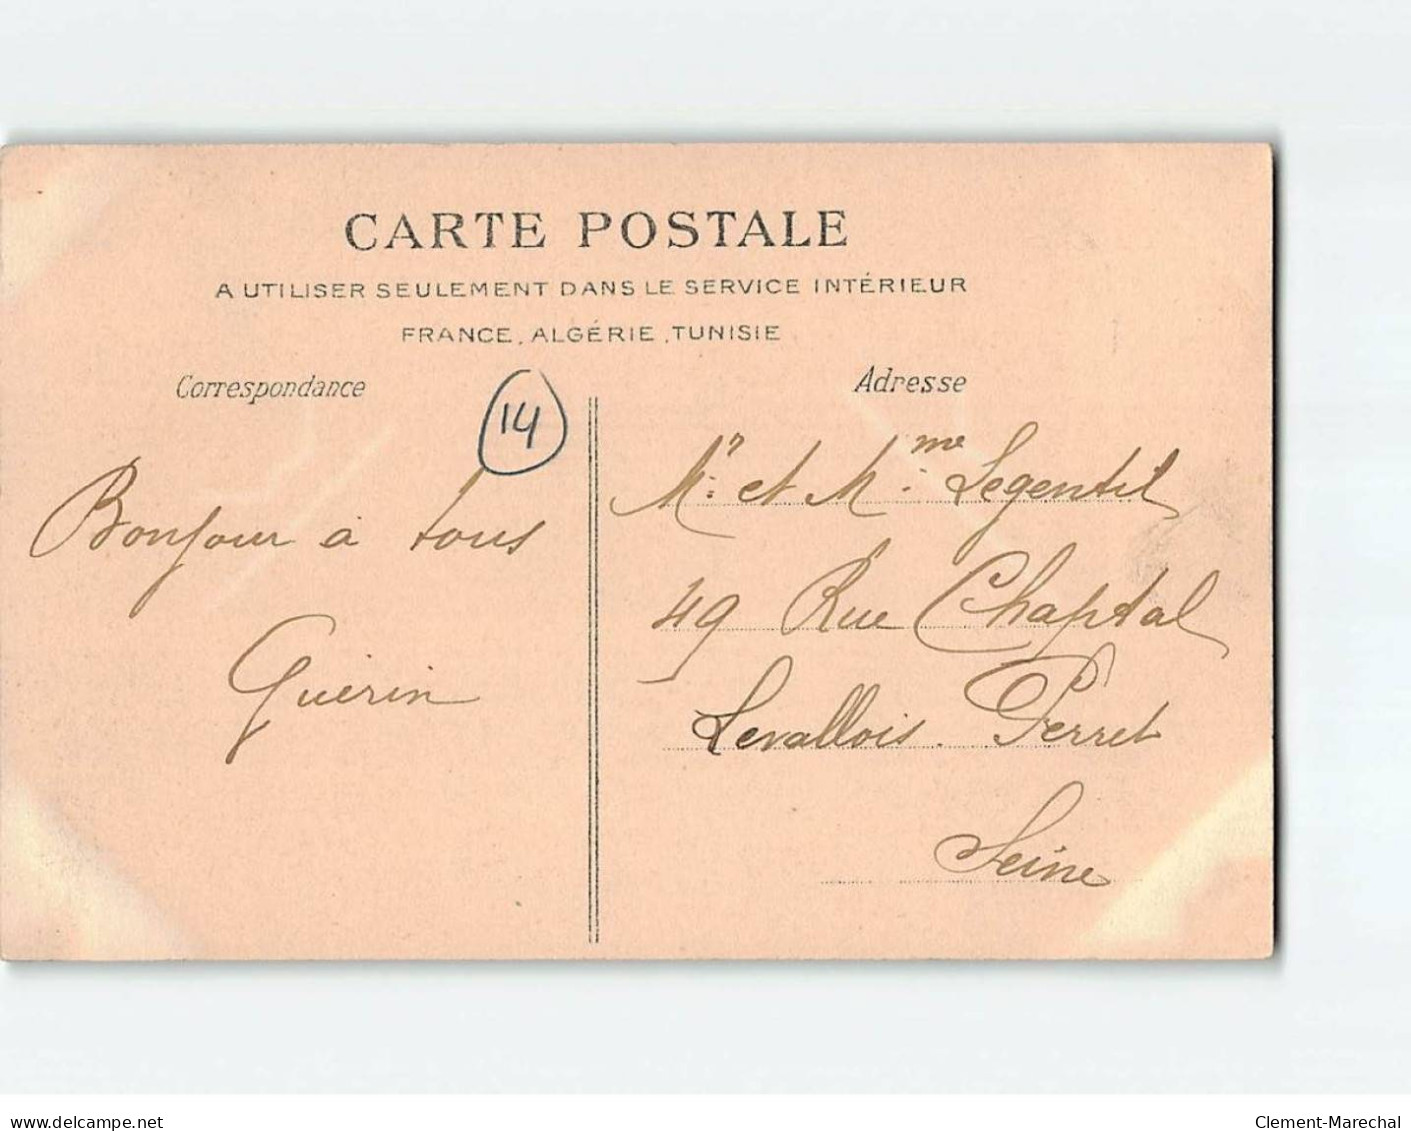 CARTE POSTALE
A UTILISER SEULEMENT DANS LE SERVICE INTÉRIEUR
FRANCE, ALGÉRIE, TUNISIE
Correspondance
14
Adresse
Bonjour à tous
Guérin
Mr. et Mme. Legentil
49 Rue Chaptal
Levallois. Perret
Seine
delcampe.net
Clement-Marechal